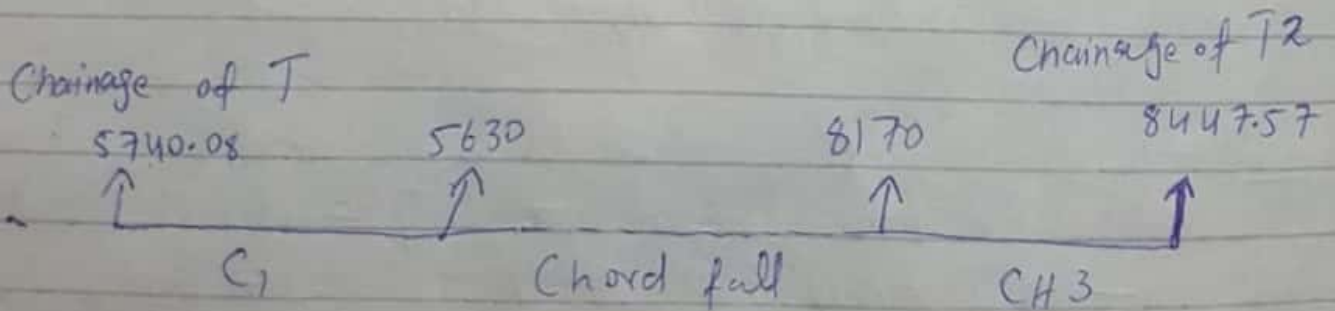 Chainage of T2
Chainage of T
5740.08 5630 8170 8447.57
C1 Chord full CH3